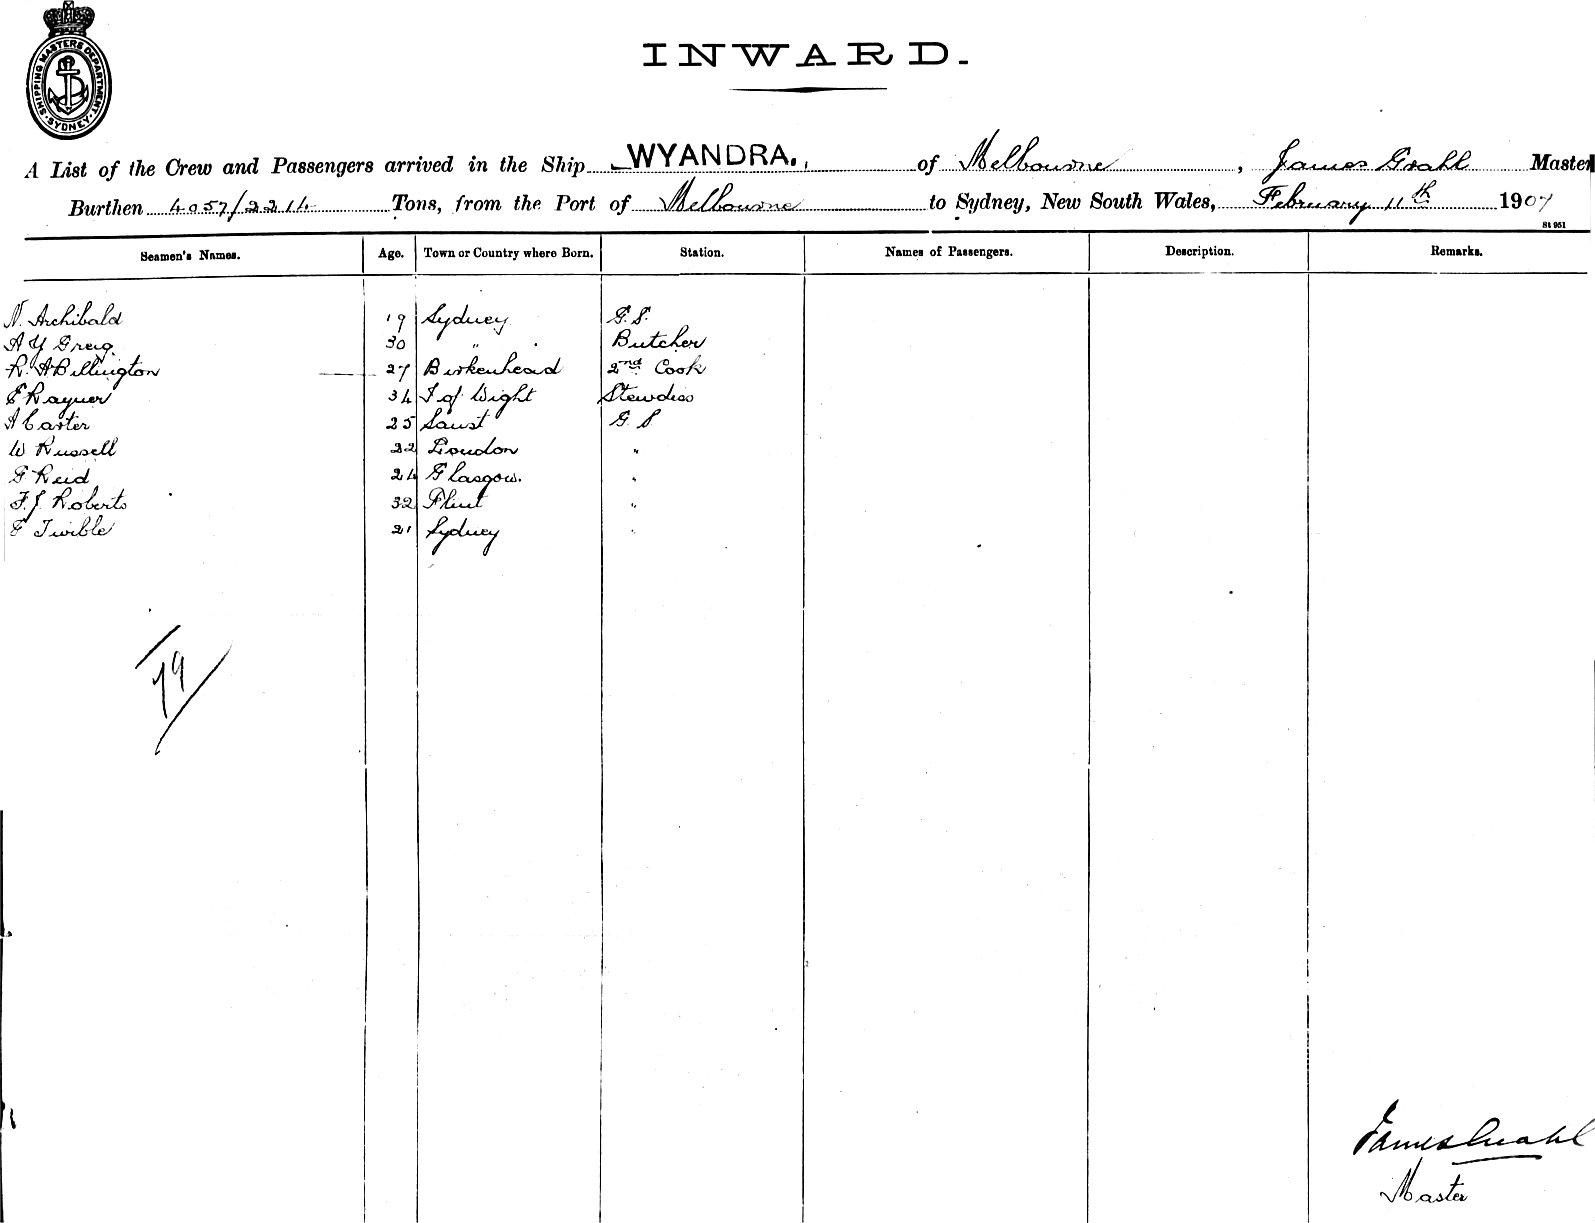 SHIPPING MASTERS DEPARTMENT
SYDNEY
INWARD.
A List of the Crew and Passengers arrived in the Ship WYANDRA. of Melbourne, James Grahl Master
Burthen 4057/2214 Tons, from the Port of Melbourne to Sydney, New South Wales, February 11th 1907
St 951
Seamen's Names. Age. Town or Country where Born. Station. Names of Passengers. Description. Remarks.
N. Archibald 19 Sydney G.S.
A Y Greig 30 " Butcher
R. A Billington 27 Birkenhead 2nd Cook
E Rayner 34 I of Wight Stewdiss
A Carter 25 G S
W Russell 22 London "
G Reid 24 Glasgow. "
F. J. Roberts 32 Flint "
E Twible 21 Sydney "
79
James Grahl
Master